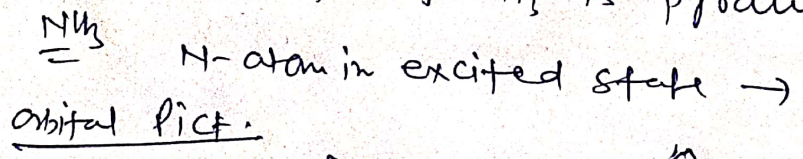 NH3
N-atom in excited state →
orbital Pict.